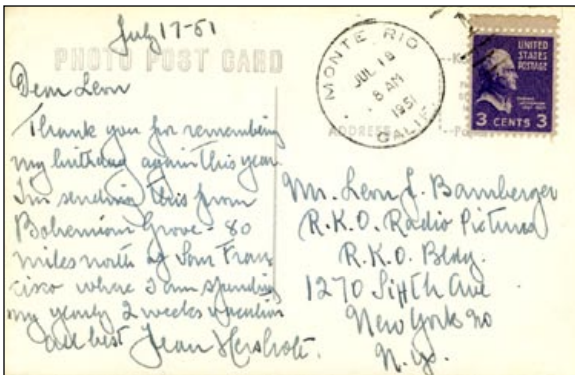 July 17-51
PHOTO POST CARD
Dear Leon
Thank you for remembering
my birthday again this year.
I'm sending this from
Bohemian Grove - 80
miles north of San Fran
cisco where I am spending
my yearly 2 weeks vacation
all best Jean Hersholt.
MONTE RIO
JUL 18
8 AM
1951
CALIF.
UNITED
STATES
POSTAGE
3 CENTS 3
ADDRESS
Mr. Leon J. Bamberger
R.K.O. Radio Pictures
R.K.O. Bldg.
1270 Sixth Ave
New York 20
N.Y.